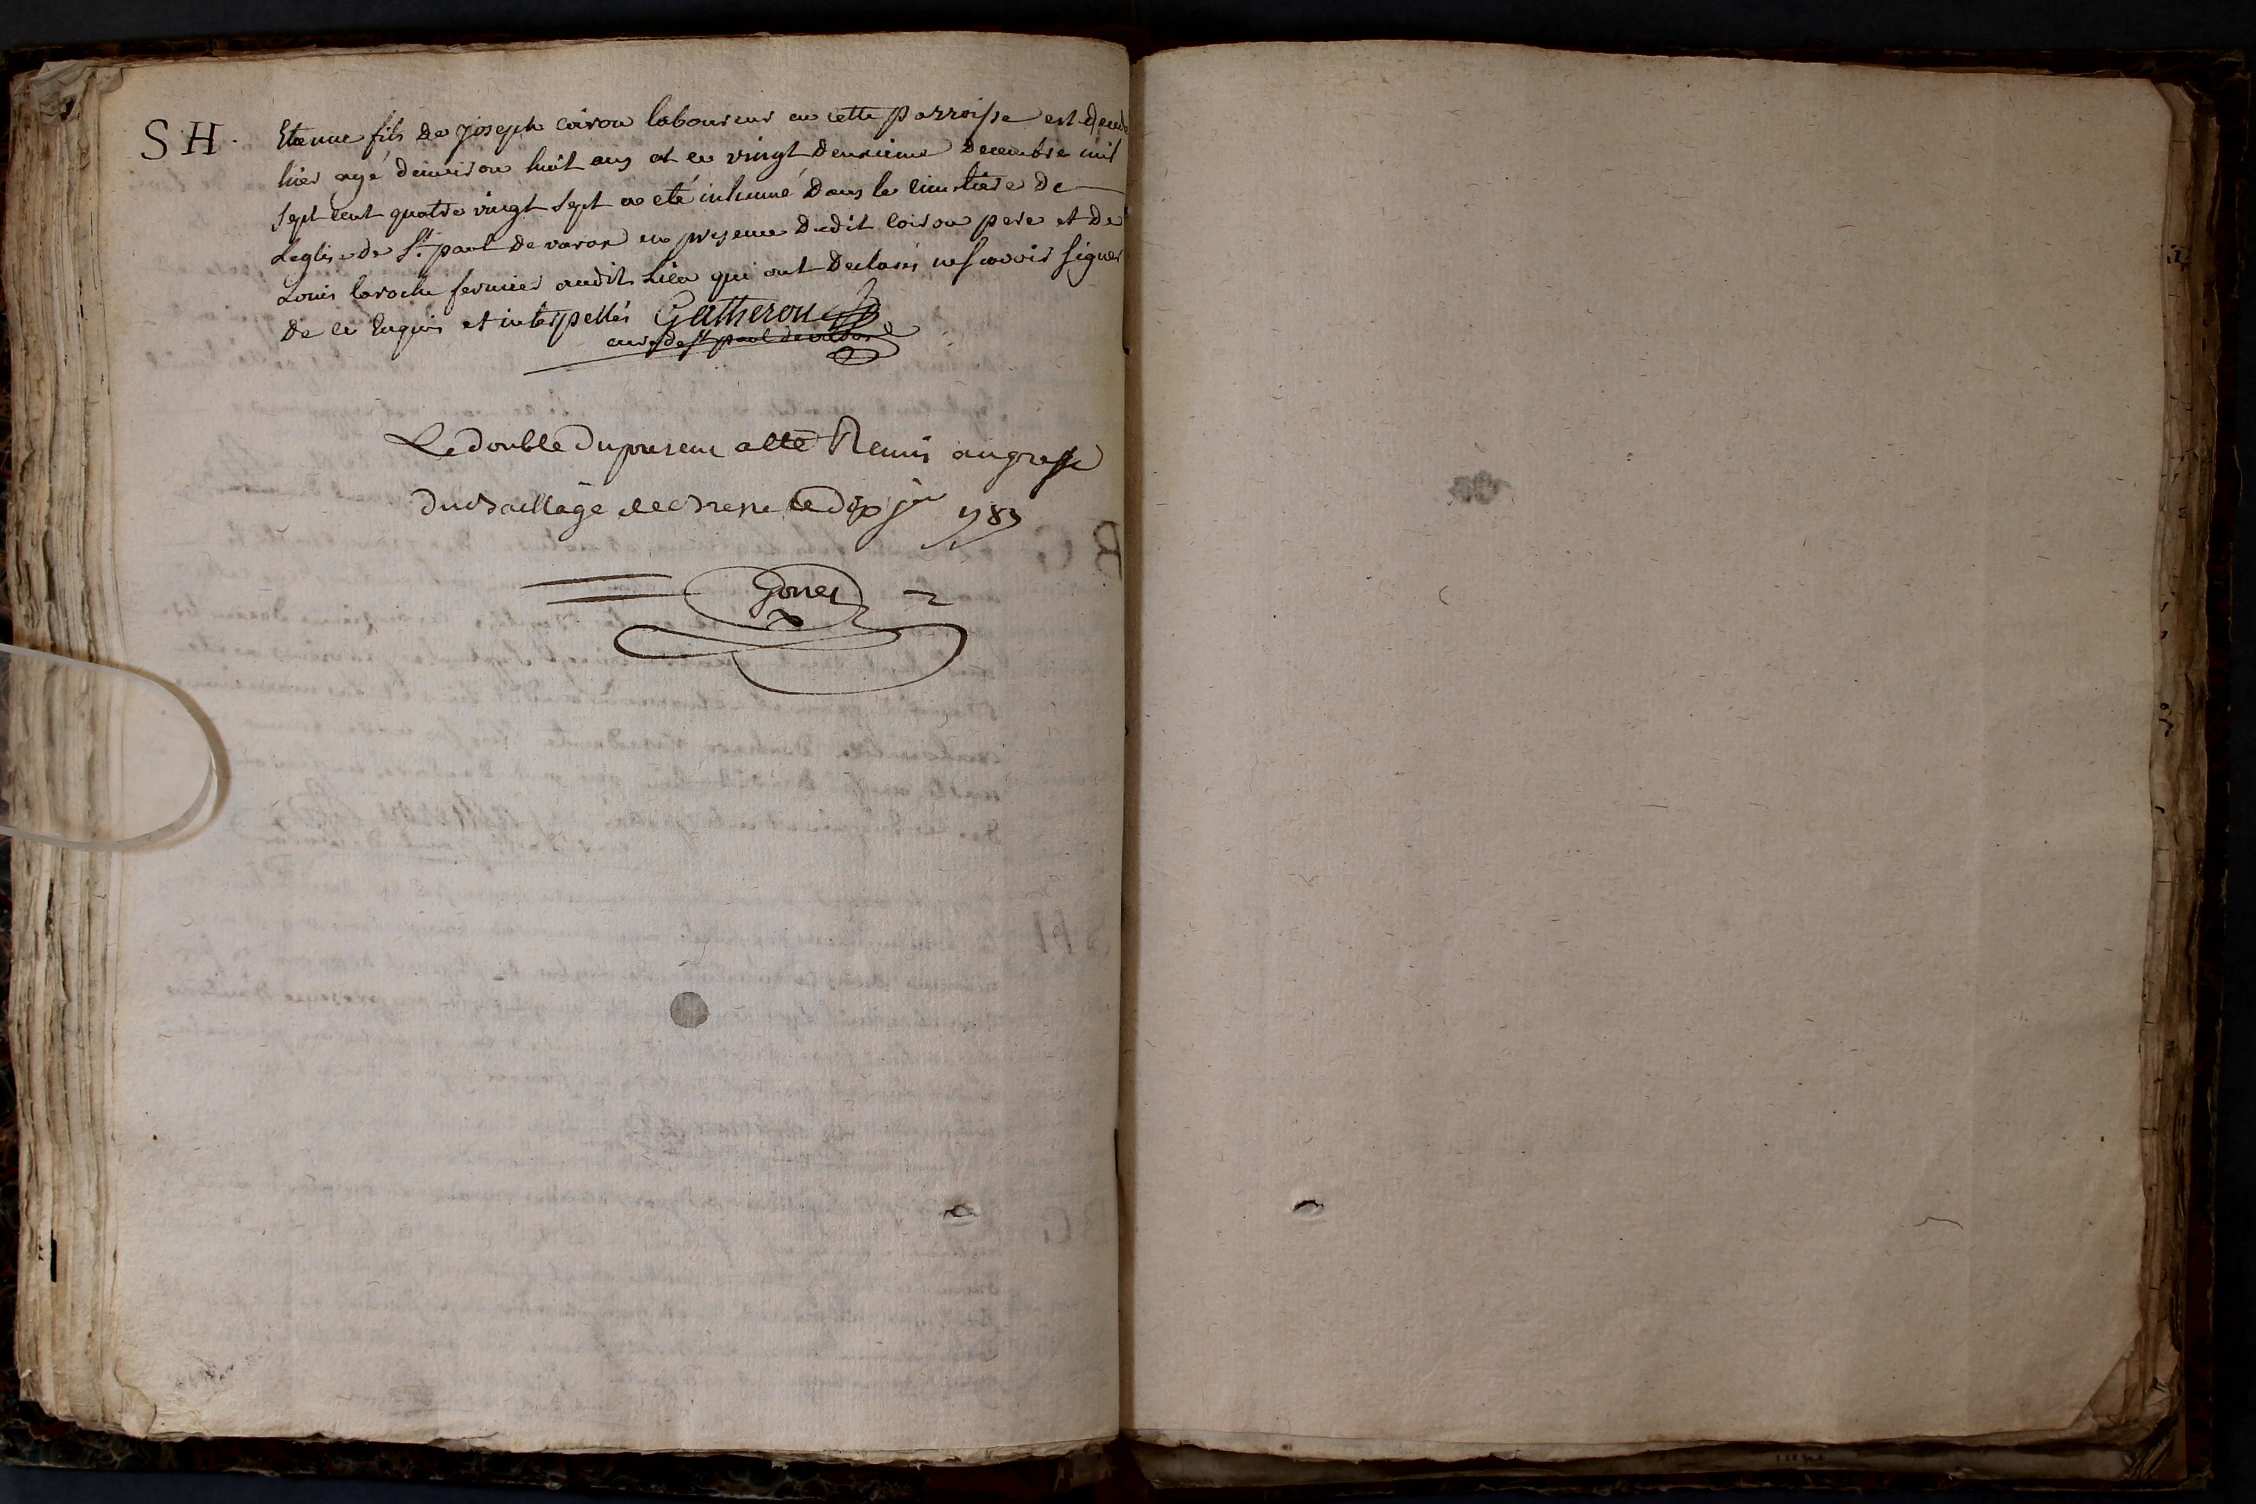 S H.
Etienne fils de Joseph coiron laboureur en cette parroisse est decedé
hier agé d'environ huit ans et ce vingt deuxieme decembre mil
sept cent quatre vingt sept a eté inhumé dans le cimetiere de
Leglise de St. paul de varax en presence dudit coiron pere et de
Louis laroche fermier audit Lieu qui ont declarés ne scavoir signer
de ce Enquis et interpellés Gatheron
curé de St paul de varax
Le double du present a eté Remis au greffe
du Bailliage de Bresse le dix jer